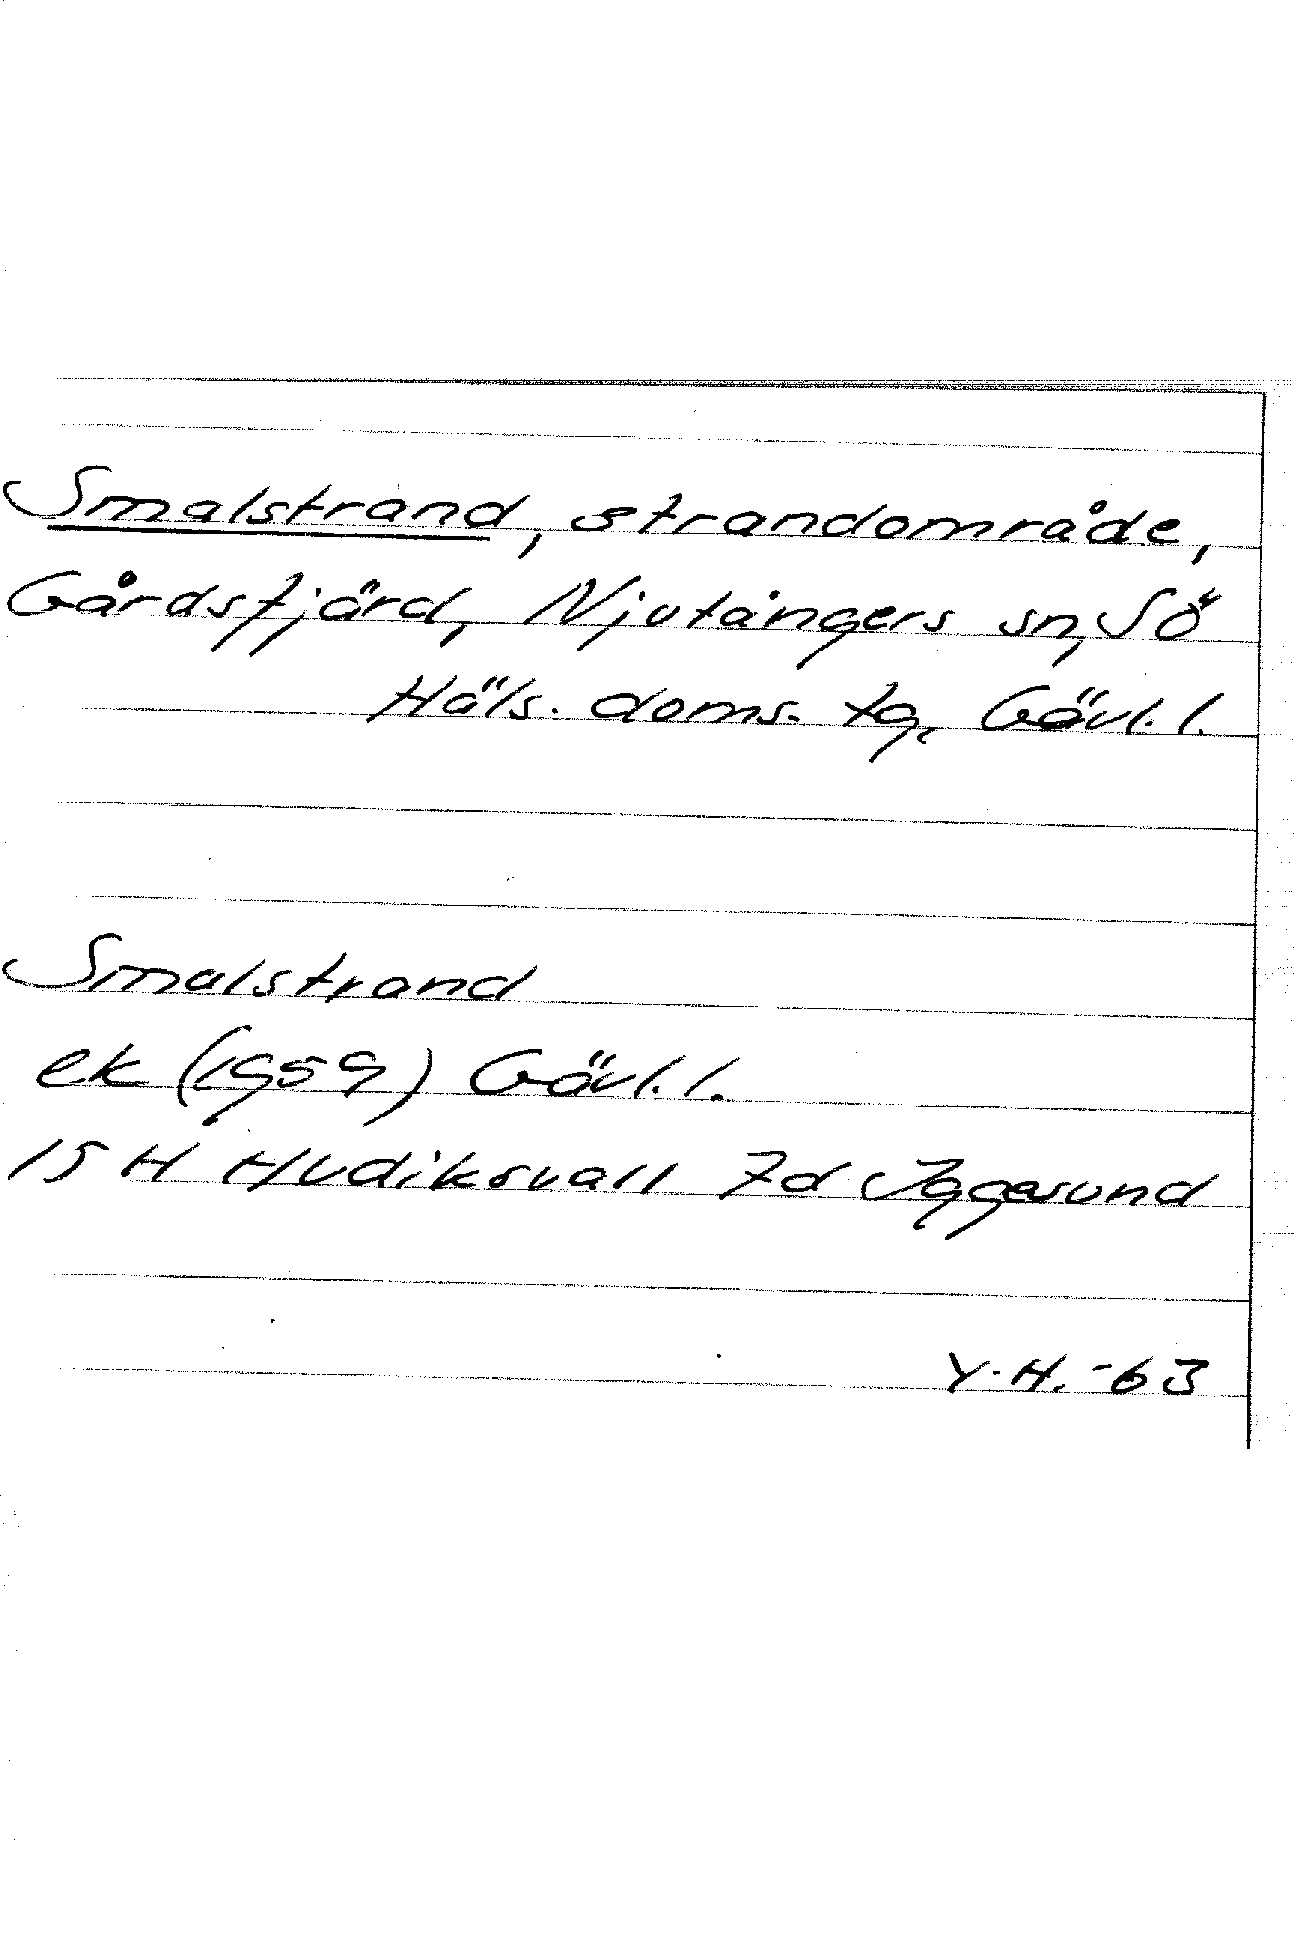 Smalstrand, strandområde,
Gårdsfjärd, Njutångers sn, Sö
Häls. doms. tg, Gävl. l.
Smalstrand
ek (1959) Gävl. l.
15 H Hudiksvall 7d Iggesund
Y. H. -63